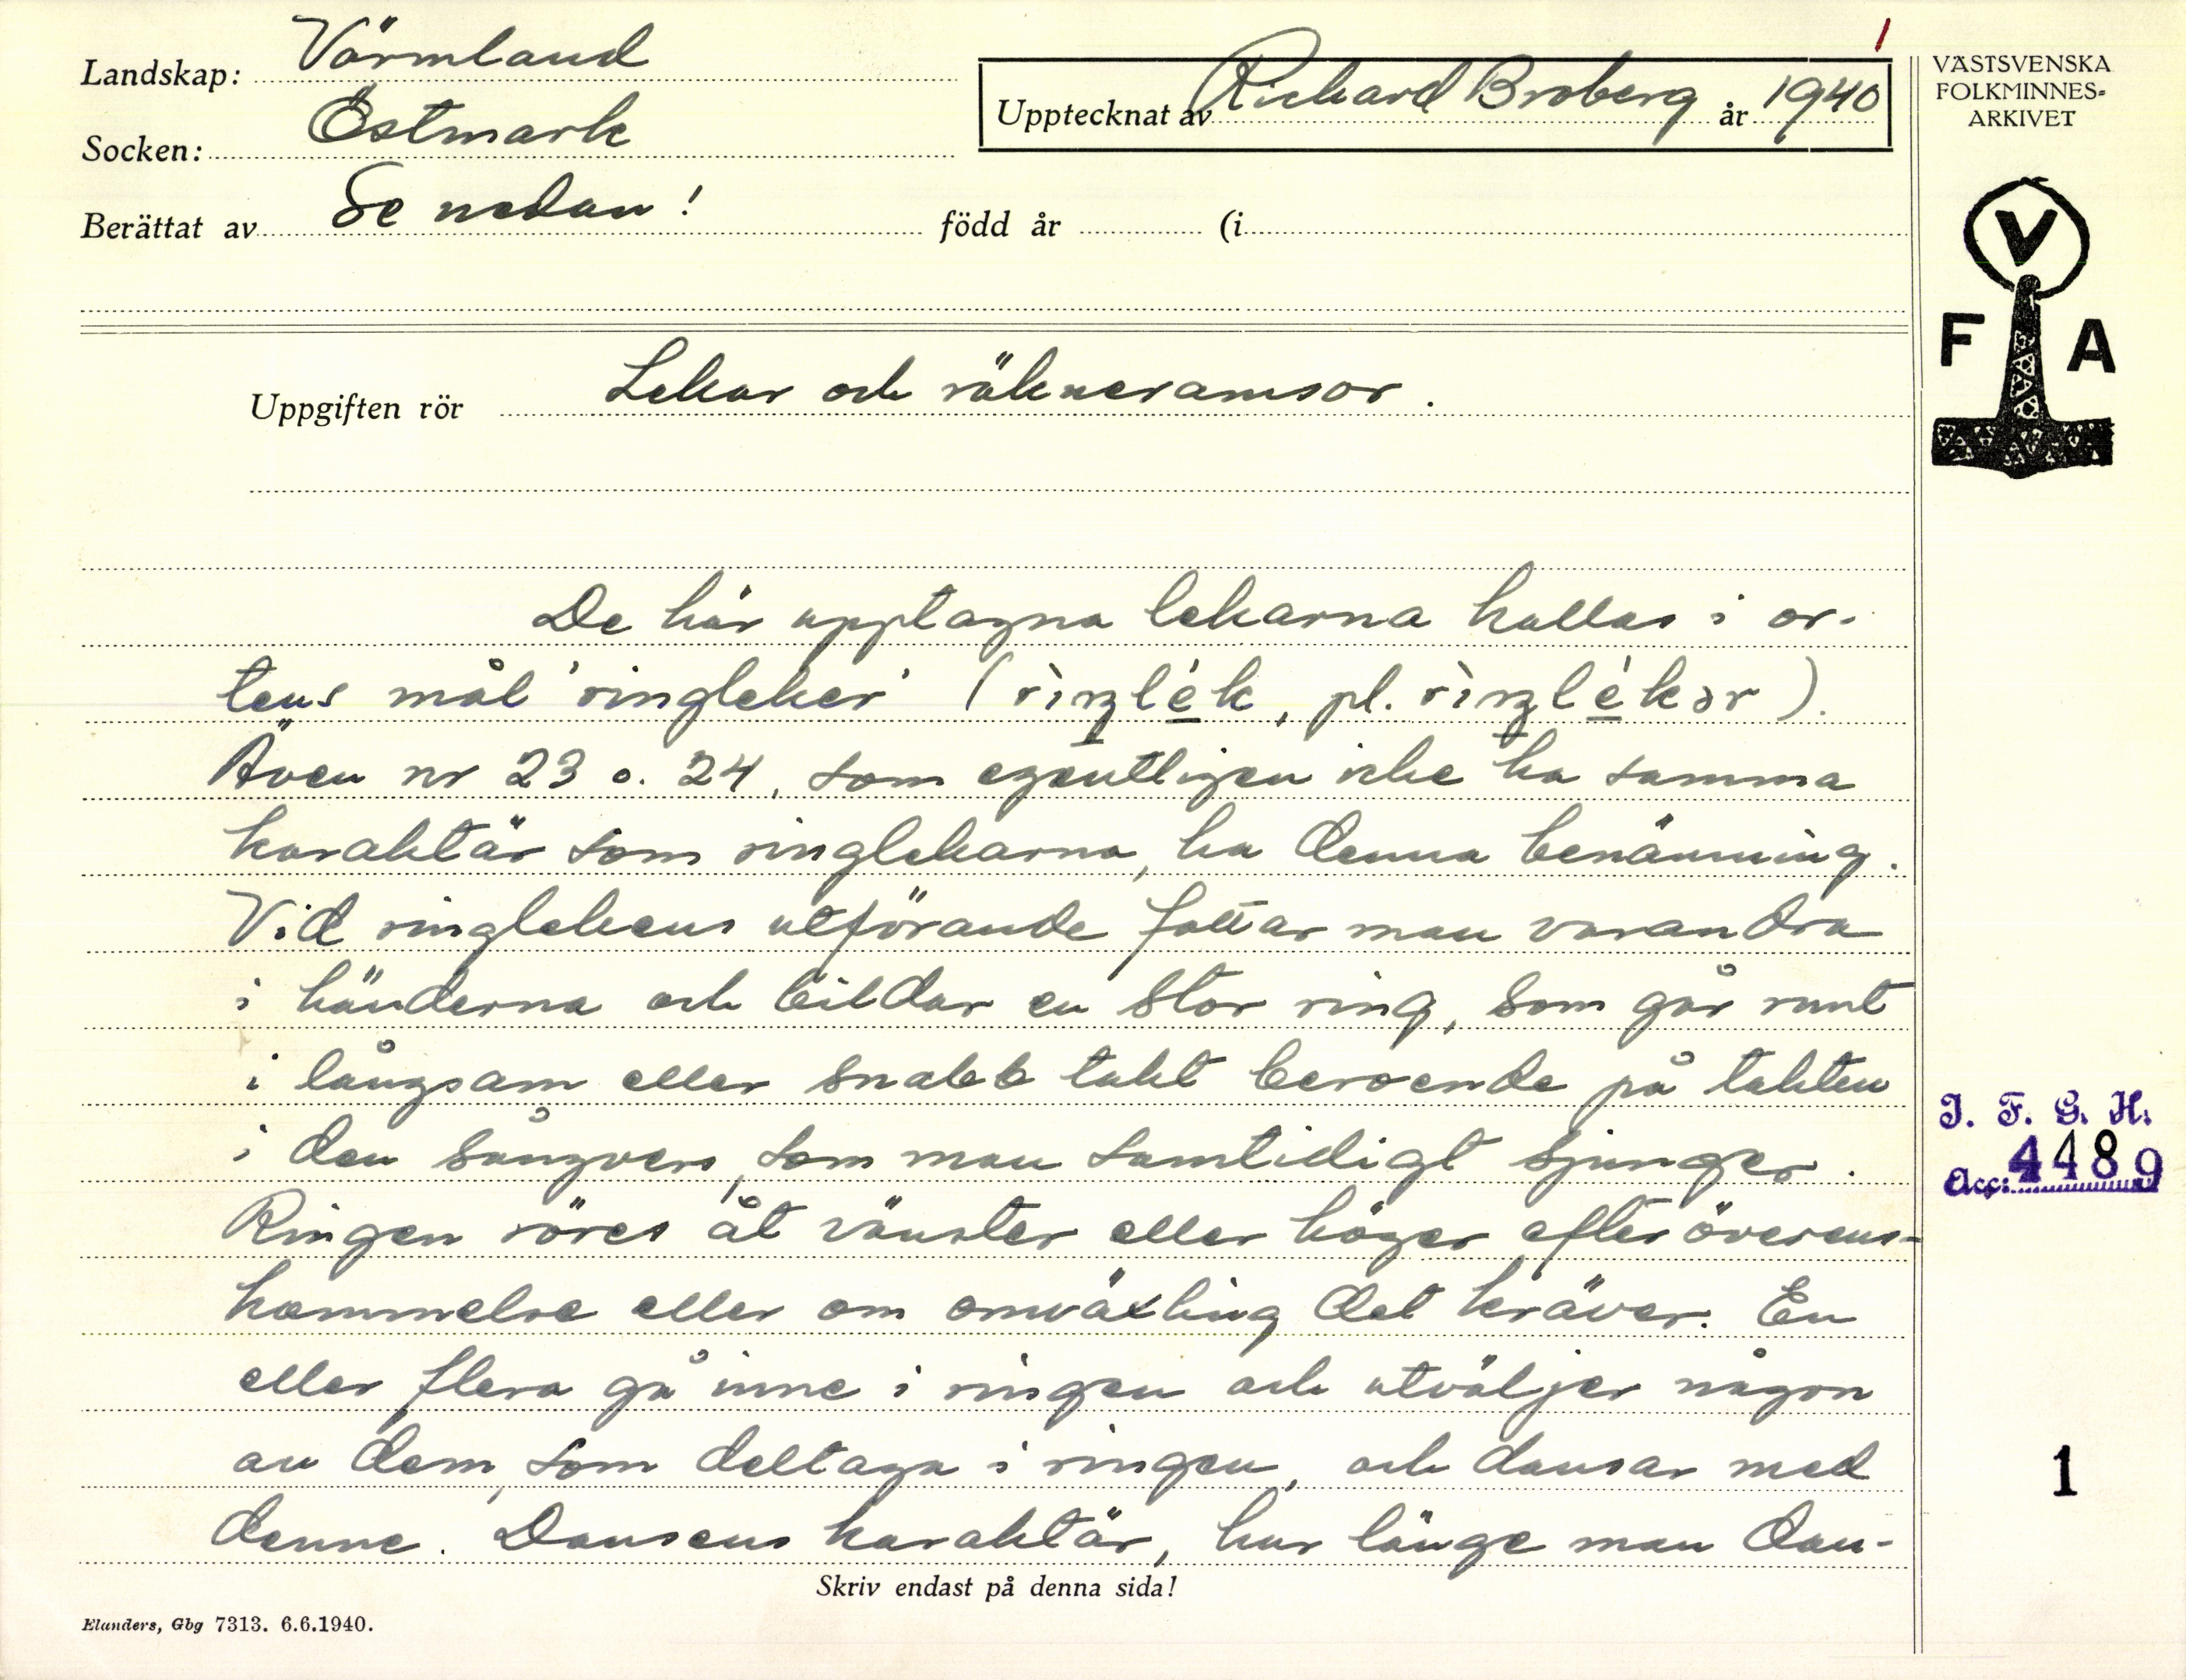 1
Landskap: Värmland
Socken: Östmark
Berättat av Se nedan! född år (i
Upptecknat av Richard Broberg år 1940
VÄSTSVENSKA
FOLKMINNES-
ARKIVET
V
F A
Uppgiften rör Lekar och räkneramsor.
De här upptagna lekarna kallas i or-
tens mål 'ringleker' (rìŋlék, pl. rìŋlékər).
Även nr 23 o. 24, som egentligen icke ha samma
karaktär som ringlekarna, ha denna benämning.
Vid ringlekens utförande fattar man varandra
i händerna och bildar en stor ring, som går runt
i långsam eller snabb takt beroende på takten
i den sångvers, som man samtidigt sjunger.
Ringen röres åt vänster eller höger efter överens-
kommelse eller om omväxling det kräver. En
eller flera gå inne i ringen och utväljer någon
av dem, som deltaga i ringen, och dansar med
denne. Dansens karaktär, hur länge man dan-
I. F. G. H.
Acc: 4489
1
Skriv endast på denna sida!
Elanders, Gbg 7313. 6.6.1940.